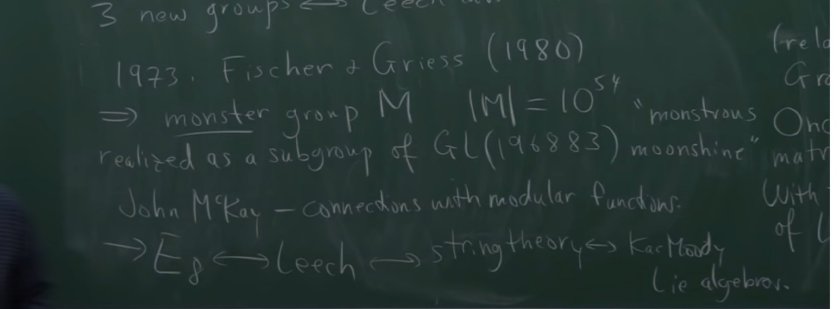 3 new groups ⟷ Leech
1973. Fischer & Griess (1980)
⟹ monster group M |M| = 10^54 "monstrous
realized as a subgroup of GL(196883) moonshine"
John McKay – connections with modular functions.
→ E8 ⟷ Leech ⟷ string theory ↔ Kac Moody
Lie algebras.
(rela
Gr
Onc
matr
With
of L